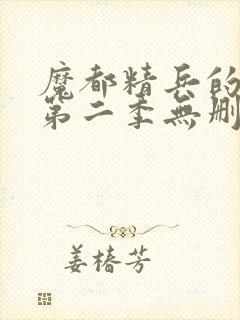 魔都精兵的
第二季無刪
姜椿芳